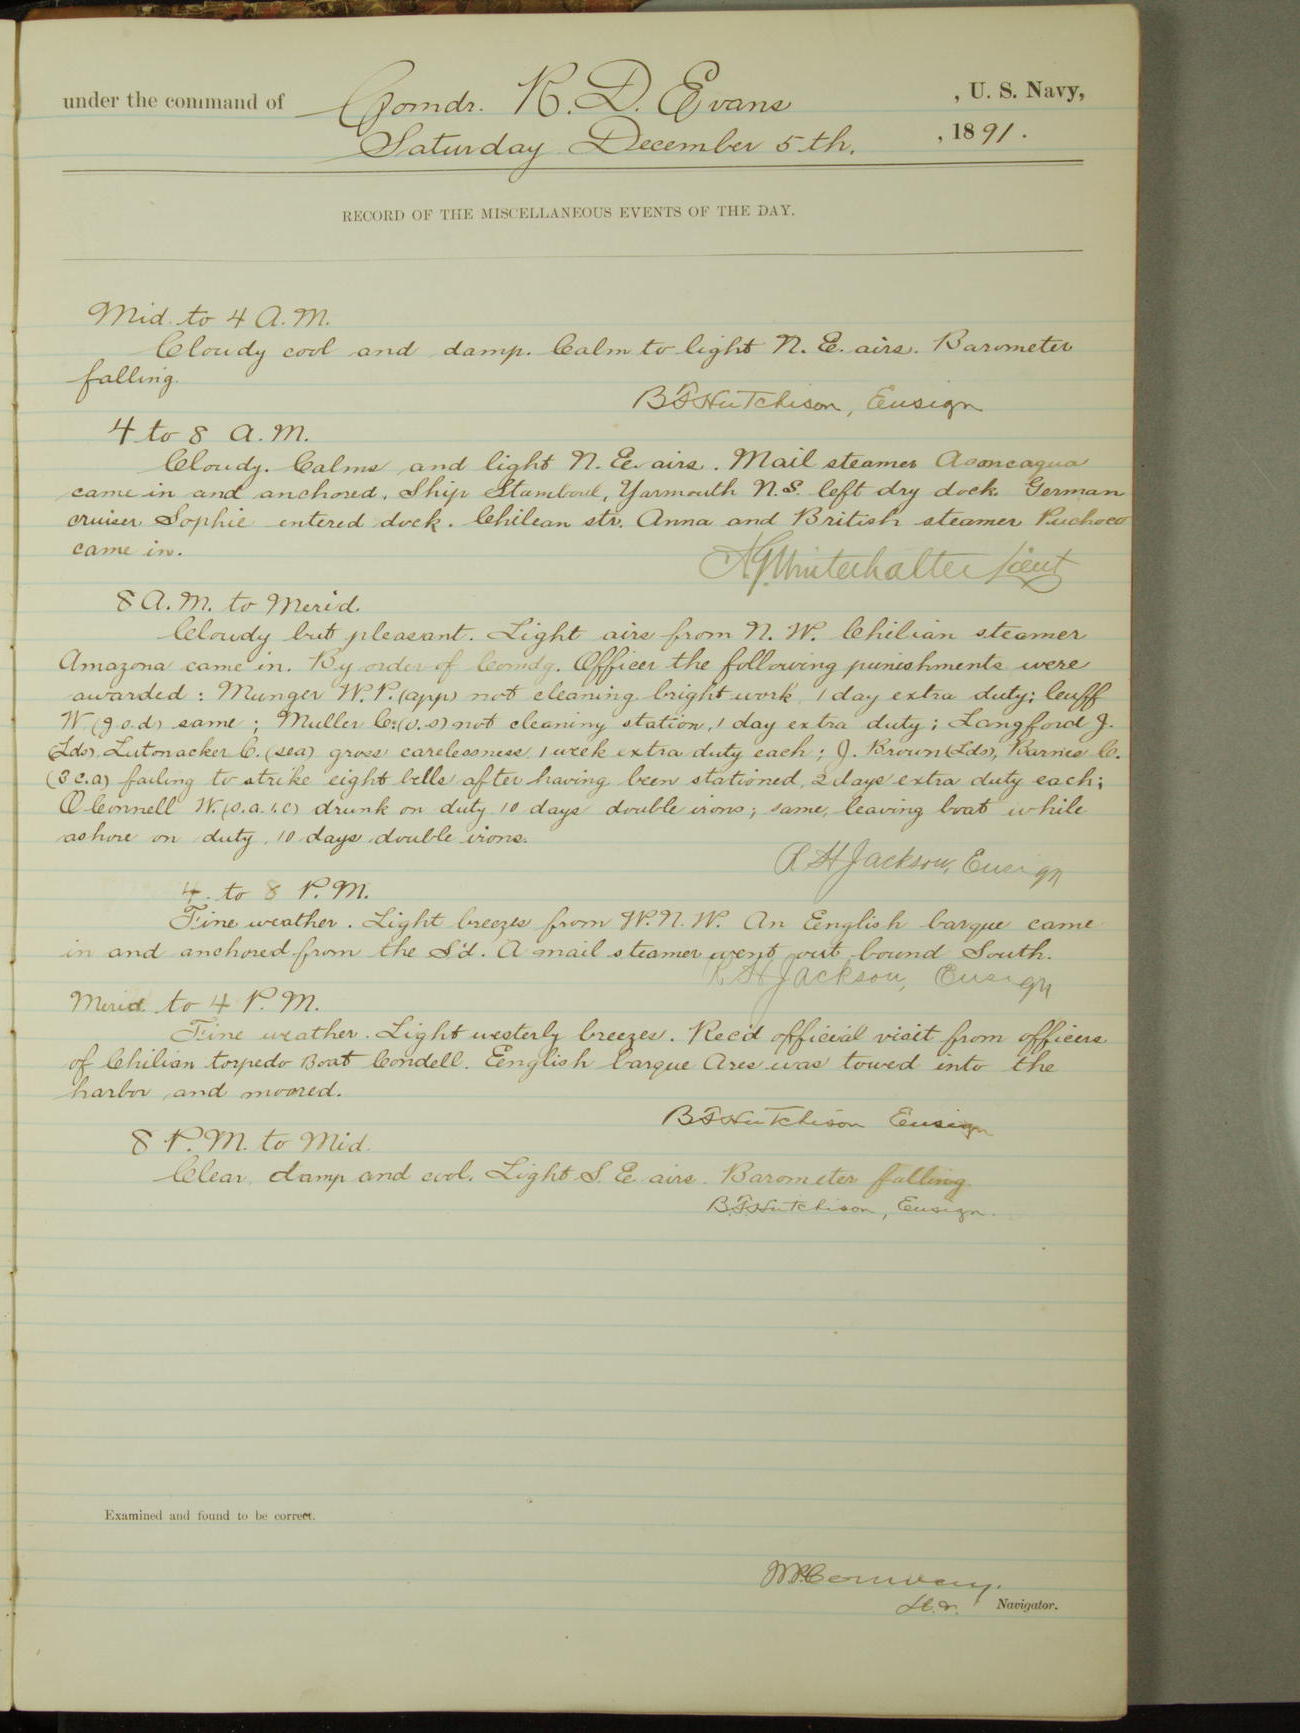 under the command of Comdr. R. D. Evans , U. S. Navy,
Saturday December 5th. , 1891.
RECORD OF THE MISCELLANEOUS EVENTS OF THE DAY.
Mid. to 4 A.M.
Cloudy cool and damp. Calm to light N. E. airs. Barometer
falling.
B F Hutchison, Ensign
4 to 8 A.M.
Cloudy. Calms and light N. E. airs. Mail steamer Aconcagua
came in and anchored. Ship Stamboul, Yarmouth N.S. left dry dock. German
cruiser Sophie entered dock. Chilean str. Anna and British steamer Puchoco
came in.
A G Winterhalter Lieut
8 A.M. to Merid.
Cloudy but pleasant. Light airs from N. W. Chilian steamer
Amazona came in. By order of Comdg. Officer the following punishments were
awarded: Munger W.P. (app) not cleaning bright work, 1 day extra duty; Cuff
W (g.o.d) same; Muller C. (o.s) not cleaning station, 1 day extra duty; Langford J.
(Lds), Lutonacker C. (sea) gross carelessness 1 week extra duty each; J. Brown (Lds), Barnes C.
(3 c.a) failing to strike eight bells after having been stationed, 2 days extra duty each;
O'Connell W. (s.a.1.c) drunk on duty 10 days double irons; same, leaving boat while
ashore on duty, 10 days double irons.
R H Jackson, Ensign
4. to 8 P.M.
Fine weather. Light breezes from W.N.W. An English barque came
in and anchored from the S'd. A mail steamer went out bound South.
R H Jackson, Ensign
Merid. to 4 P.M.
Fine weather. Light westerly breezes. Rec'd official visit from officers
of Chilian torpedo Boat Condell. English barque Ares was towed into the
harbor and moored.
B F Hutchison Ensign
8 P.M. to Mid.
Clear, damp and cool. Light S. E. airs. Barometer falling.
B.F. Hutchison, Ensign.
Examined and found to be correct.
Navigator.